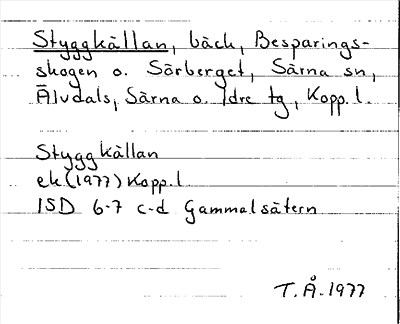 Styggkällan, bäck, Besparings-
skogen o. Särberget, Särna sn,
Älvdals, Särna o. Idre tg, Kopp. l.
Styggkällan
ek. (1977) Kopp. l.
15D 6-7 c-d Gammalsätern
T.Å. 1977